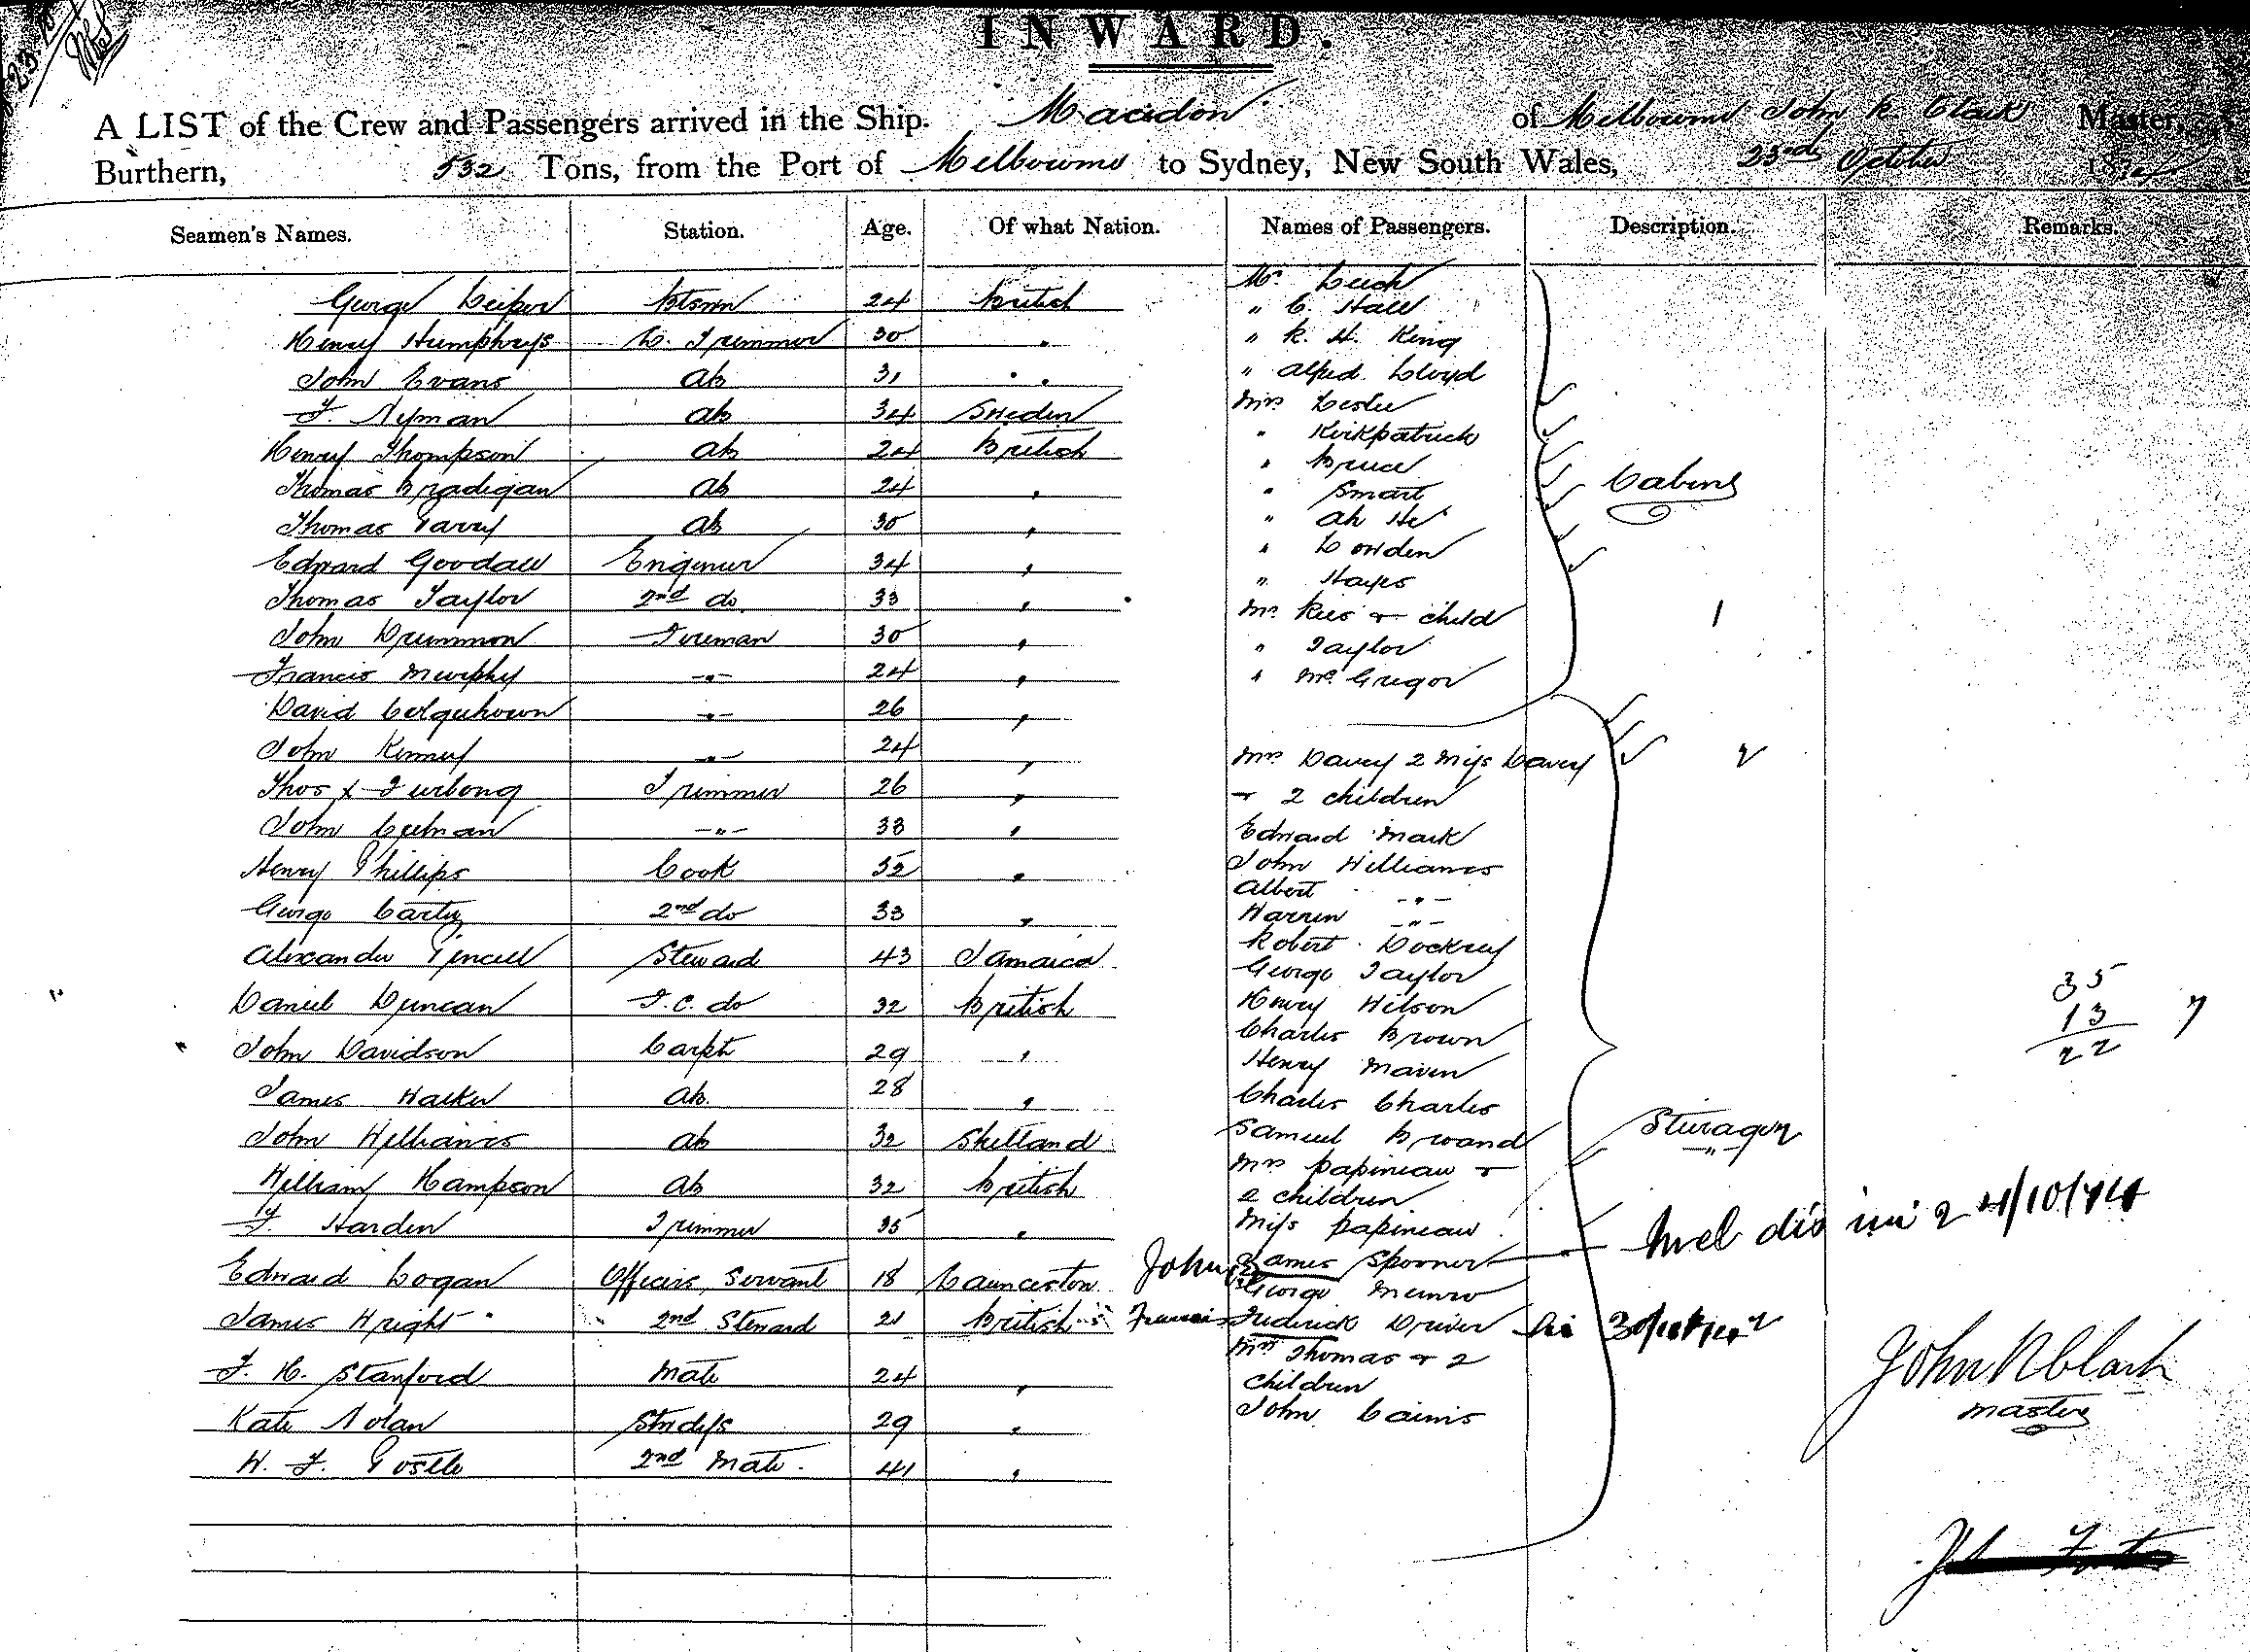 INWARD.
A LIST of the Crew and Passengers arrived in the Ship. Macedon of Melbourne John R. Clark Master,
Burthern, 532 Tons, from the Port of Melbourne to Sydney, New South Wales, 23rd October 1874
Seamen's Names. Station. Age. Of what Nation. Names of Passengers. Description. Remarks.
George Leiper Btsmn 24 British
Henry Humphreys L. Trimmer 30 "
John Evans ab 31 "
F. Nyman ab 34 Sweden
Henry Thompson ab 24 British
Thomas Bradigan ab 24 "
Thomas Parry ab 30 "
Edward Goodall Engineer 34 "
Thomas Taylor 2nd do 33 "
John Drummon Fireman 30 "
Francis Murphy -"- 24 "
David Colquhoun -"- 26 "
John Kenney -"- 24 "
Thos x Furlong Trimmer 26 "
John Colman -"- 33 "
Henry Phillips Cook 32 "
George Carty 2nd do 33 "
Alexander Pencell Steward 43 Jamaica
Daniel Duncan F.C. do 32 British
John Davidson Carptr 29 "
James Walker ab. 28 "
John Williams ab 32 Shetland
William Hampson ab 32 British
F. Harden Trimmer 35 "
Edward Logan Officers Servant 18 Launceston
James Wright 2nd Steward 21 British
F. H. Stanford Mate 24 "
Kate Nolan Strdess 29 "
W. F. Postle 2nd Mate. 41 "
Mr. Leich
" C. Hall
" R. H. King
" Alfred Lloyd
Mrs Leslie
" Kirkpatrick
" Bruce
" Smart
" Ah He
" Lowden
" Hayes
Mr. Rees & child
" Taylor
" McGregor
Cabins
1
Mrs Davey 2 Miss Davey 2
& 2 children
Edward Mark
John Williams
Albert -"-
Warren -"-
Robert Dockrey
George Taylor
Henry Wilson
Charles Brown
Henry Maven
Charles Charles
Samuel Brwand
Mrs Papineau &
2 children
Miss Papineau
John James Spooner
George Munro
Francis Frederick Driver
Mrs Thomas & 2
children
John Cairns
Steerage
-"-
35
13
22
7
24/10/74
John R Clark
Master